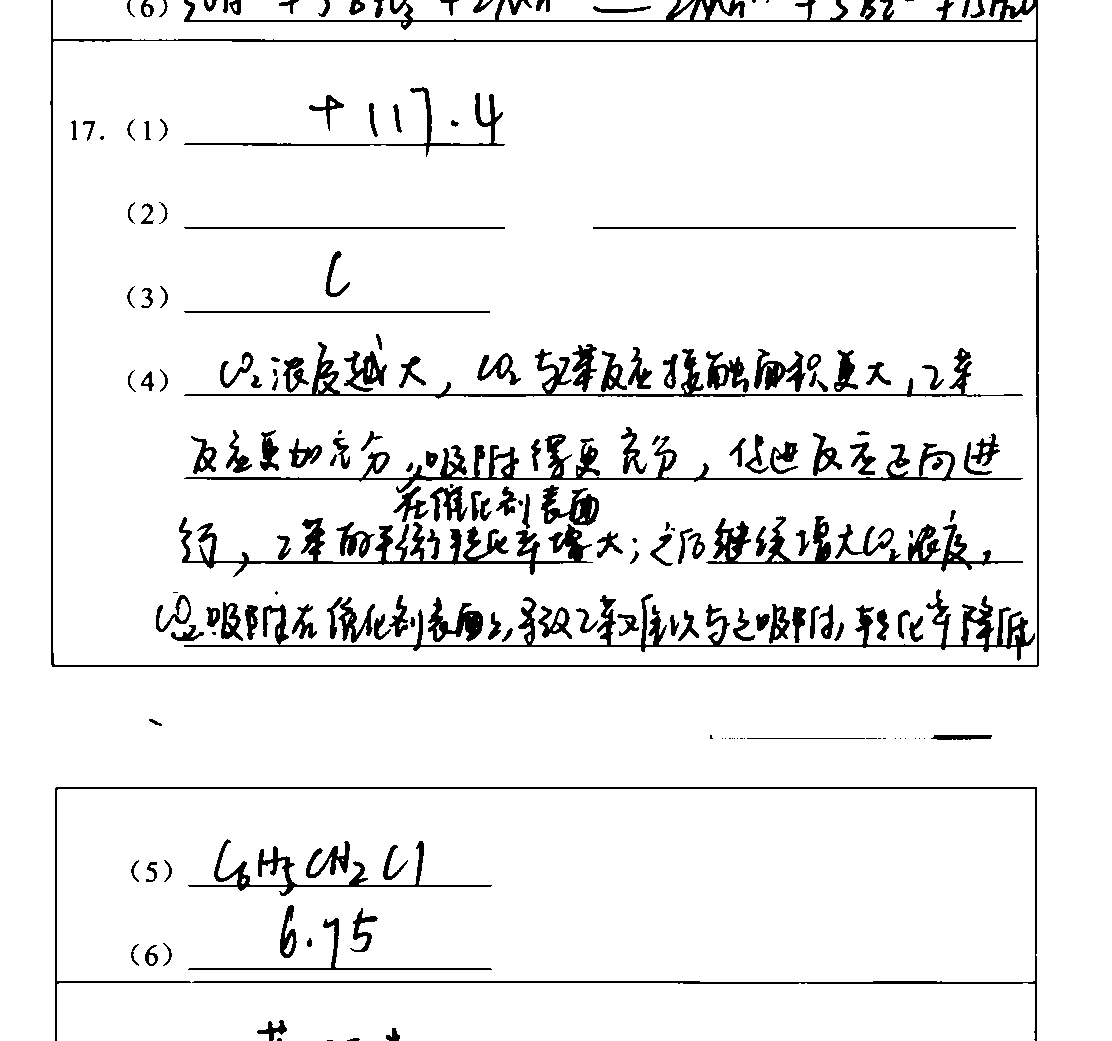 (6)
17. (1) +117.4
(2)
(3) C
(4) CO₂浓度越大，CO₂与乙苯反应接触面积更大，乙苯
反应更加充分，吸附得更充分，促进反应正向进
在催化剂表面
行，乙苯的平衡转化率增大；之后继续增大CO₂浓度，
CO₂吸附在催化剂表面上，导致乙苯难以与之吸附，转化率降低
(5) C₆H₅CH₂Cl
(6) 6.75